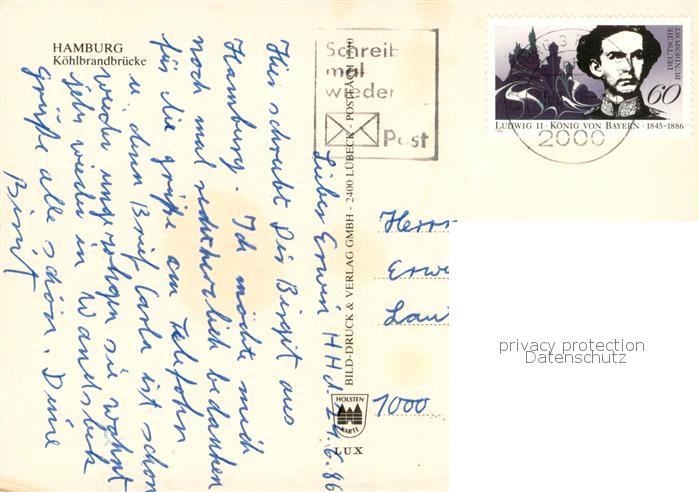 HAMBURG
Köhlbrandbrücke
Schreib
mal
wieder
Post
DEUTSCHE
BUNDESPOST
60
LUDWIG II · KÖNIG VON BAYERN · 1845-1886
2000
BILD-DRUCK & VERLAG GMBH - 2400 LÜBECK - POSTFACH
HOLSTEN
KARTE
LUX
HHd. 24.6.86
Lieber Erwin
Hier schreibt Dir Birgit aus
Hamburg. Ich möchte mich
noch mal recht herzlich bedanken
für die grüße am Telefohn
u. denn Brief Carla ist schon
wieder umgezohgen sie wohnt
jetz wieder in Wandsbek
grüße alle schön. Deine
Birgit
Herrn
Erwi
Lau
1000
privacy protection
Datenschutz